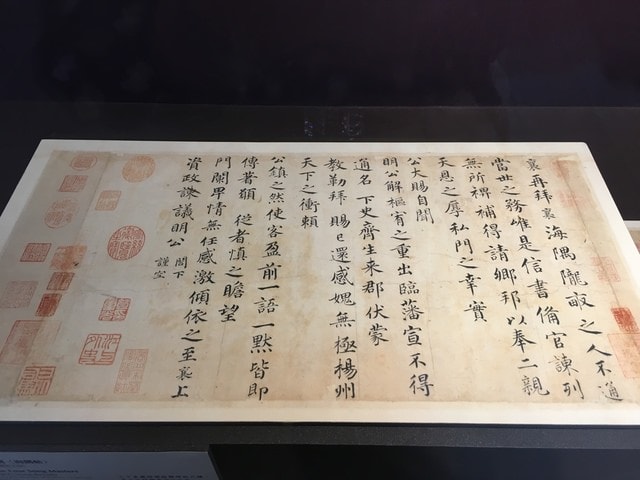 襄再拜襄海隅隴畝之人不通
當世之務唯是信書備官諫列
無所裨補得請鄉邦以奉二親
天恩之厚私門之幸實
公大賜自聞
明公解樞宥之重出臨藩宣不得
通名下史齊生來郡伏蒙
教勒拜賜已還感媿無極楊州
天下之衝賴
公鎮之然使客盈前一語一默皆即
傳著願從者慎之瞻望
門闌卑情無任感激傾依之至襄上
資政諫議明公閤下
謹空
Four Song Masters